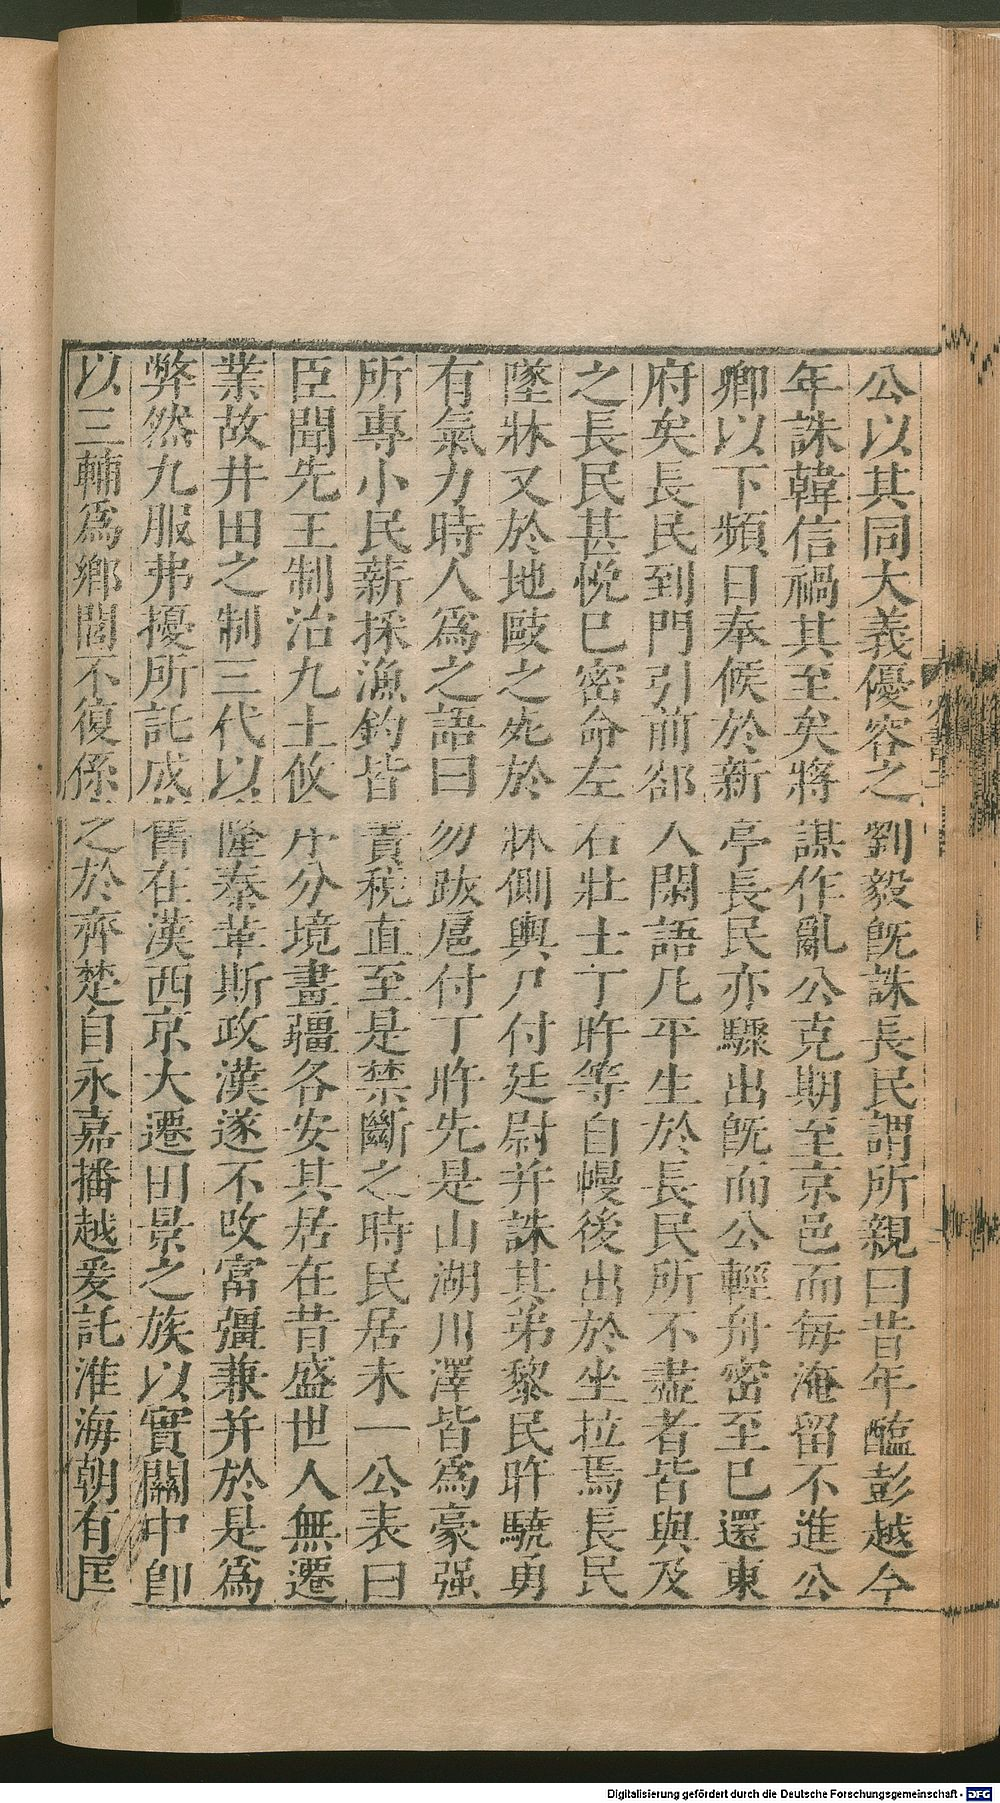 公以其同大義優容之劉毅旣誅長民謂所親曰昔年醢彭越今
年誅韓信禍其至矣將謀作亂公克期至京邑而每淹留不進公
卿以下頻日奉候於新亭長民亦驟出旣而公輕舟密至已還東
府矣長民到門引前郤人閑語凡平生於長民所不盡者皆與及
之長民甚悅已密命左右壯士丁旿等自幔後出於坐拉焉長民
墜牀又於地毆之死於牀側輿尸付廷尉并誅其弟黎民旿驍勇
有氣力時人爲之語曰勿跋扈付丁旿先是山湖川澤皆爲豪强
所專小民薪採漁釣皆責稅直至是禁斷之時民居未一公表曰
臣聞先王制治九土攸序分境畫疆各安其居在昔盛世人無遷
業故井田之制三代以隆秦革斯政漢遂不改富彊兼并於是爲
弊然九服弗擾所託成舊在漢西京大遷田景之族以實關中卽
以三輔爲鄉閭不復係之於齊楚自永嘉播越爰託淮海朝有匡
Digitalisierung gefördert durch die Deutsche Forschungsgemeinschaft - DFG